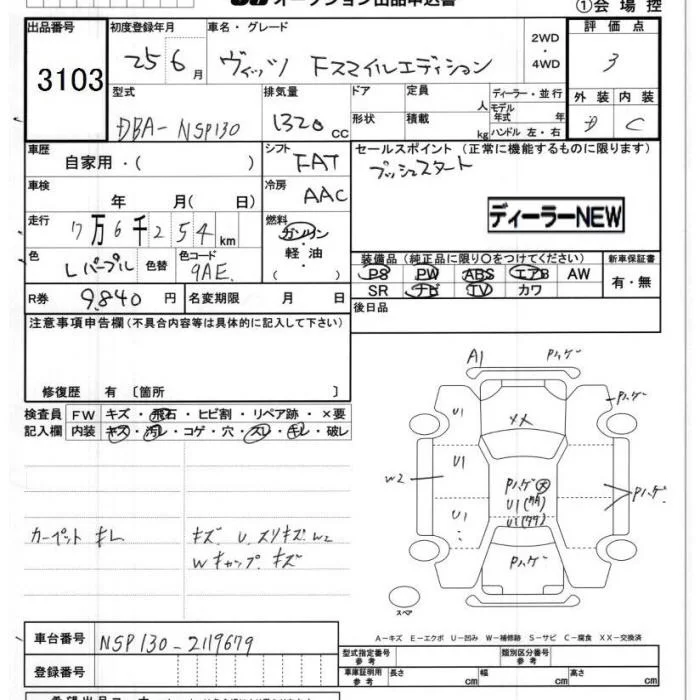 オークション出品申込書
①会場控
出品番号 初度登録年月 車名・グレード 2WD・4WD 評価点
3103 25 6月 ヴィッツ Fスマイルエディション 3
型式 排気量 ドア 定員 人 ディーラー・並行 外装 内装
DBA-NSP130 1320cc 形状 積載 kg モデル年式 年 ハンドル 左・右 D C
車歴 シフト セールスポイント(正常に機能するものに限ります)
自家用・( ) FAT プッシュスタート
車検 冷房
年 月( 日) AAC
ディーラーNEW
走行 燃料
7万6千254km ガソリン・軽油・( )
色 色替 色コード 装備品(純正品に限り○をつけてください) 新車保証書
Lパープル 9AE PS PW ABS エアB AW 有・無
R券 9,840円 名変期限 月 日 SR ナビ TV カワ
注意事項申告欄(不具合内容等は具体的に記入して下さい) 後日品
修復歴 有〔箇所 〕
検査員 FW キズ・飛石・ヒビ割・リペア跡・×要
記入欄 内装 キズ・汚レ・コゲ・穴・スレ・キレ・破レ
A1 Pハゲ
Pハゲ
U1 メメ
U1
W2 Pハゲ
U1 Pハゲ
カーペット キレ キズ. U. スリキズ W2
Wキャップ キズ
Pハゲ
スペア
A-キズ E-エクボ U-凹み W-補修跡 S-サビ C-腐食 XX-交換済
車台番号 NSP130-2119679
型式指定番号 参考 類別区分番号 参考
登録番号 車庫証明用 参考 長さ cm 幅 cm 高さ cm